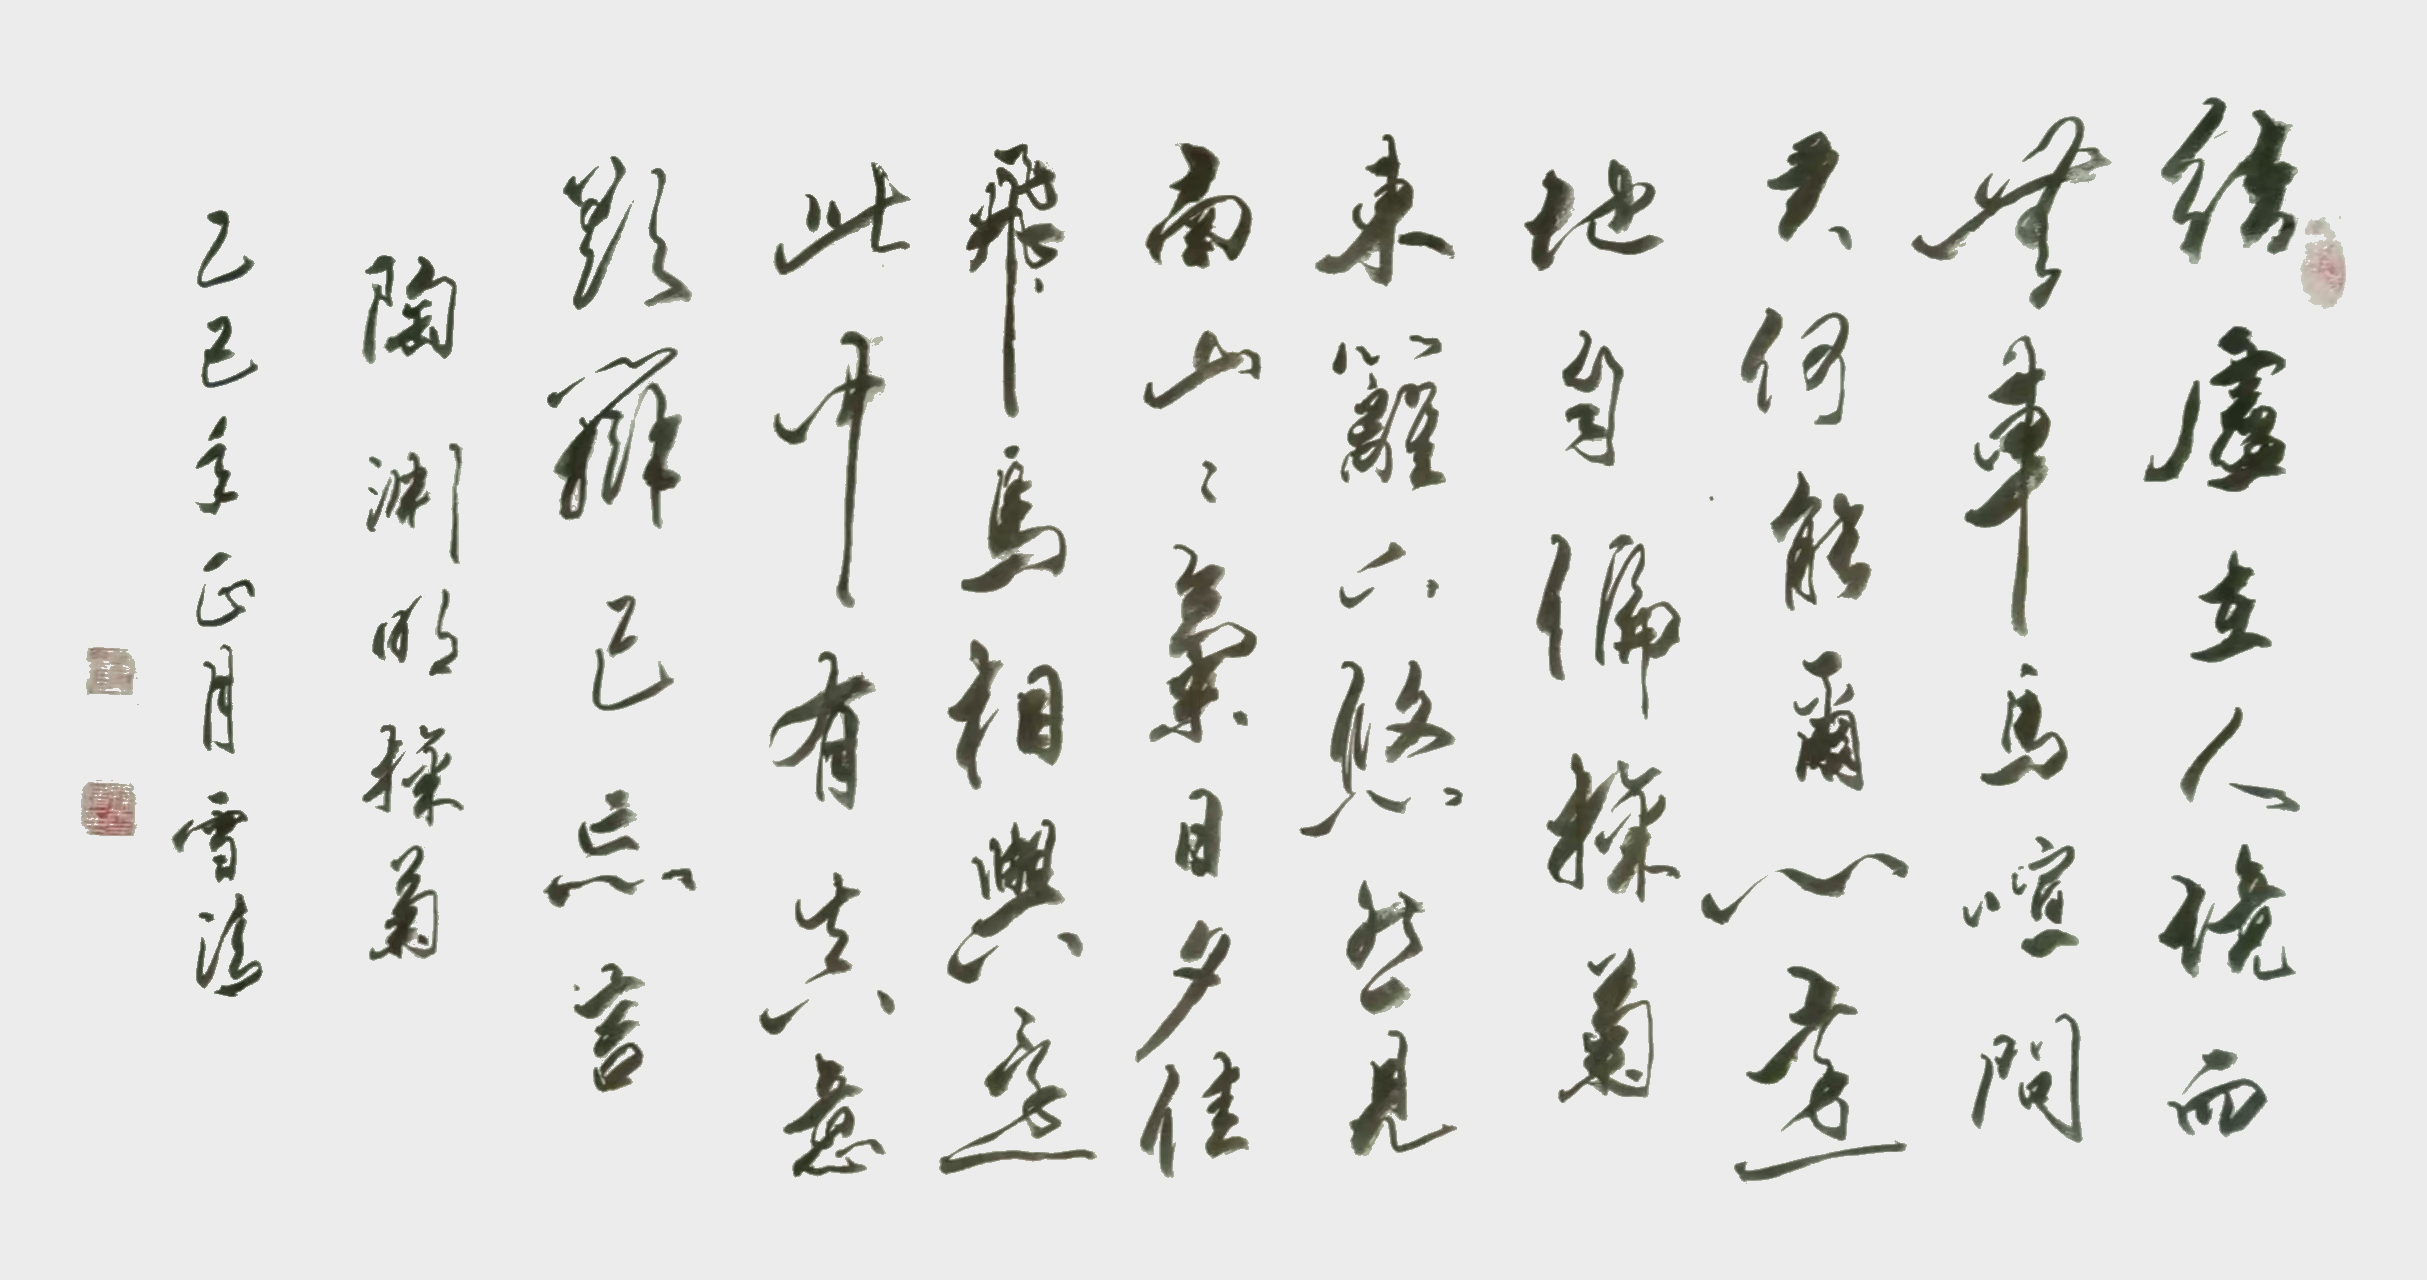 結廬在人境而
無車馬喧問
君何能爾心遠
地自偏採菊
東籬下悠然見
南山〻氣日夕佳
飛鳥相與還
此中有真意
欲辨已忘言
陶渊明採菊
乙巳年正月雪